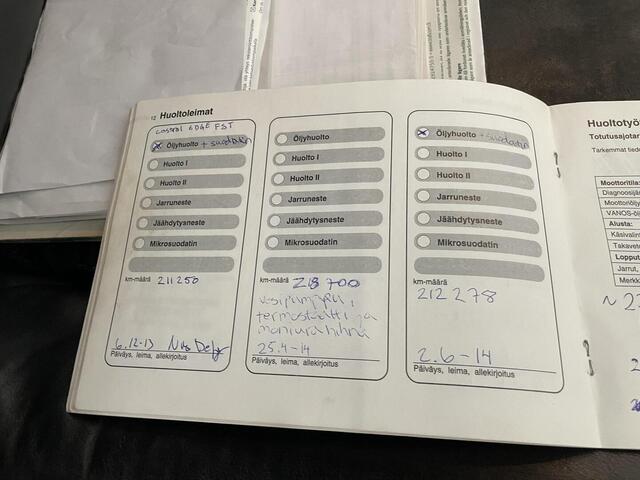 12 Huoltoleimat
Castrol EDGE FST
Öljyhuolto + suodatin
Huolto I
Huolto II
Jarruneste
Jäähdytysneste
Mikrosuodatin
km-määrä 211250
6.12-13
Päiväys, leima, allekirjoitus
Öljyhuolto
Huolto I
Huolto II
Jarruneste
Jäähdytysneste
Mikrosuodatin
km-määrä 218 700
vesipumppu,
termostaatti ja
moniurahihna
25.4-14
Päiväys, leima, allekirjoitus
Öljyhuolto + suodatin
Huolto I
Huolto II
Jarruneste
Jäähdytysneste
Mikrosuodatin
km-määrä
212 278
2.6-14
Päiväys, leima, allekirjoitus
Huoltotyö
Totutusajotar
Tarkemmat tiede
Moottoritila:
Diagnoosijä
Moottoriölj
VANOS-öl
Alusta:
Käsivalin
Takavete
Lopput
Jarrut,
Merkk